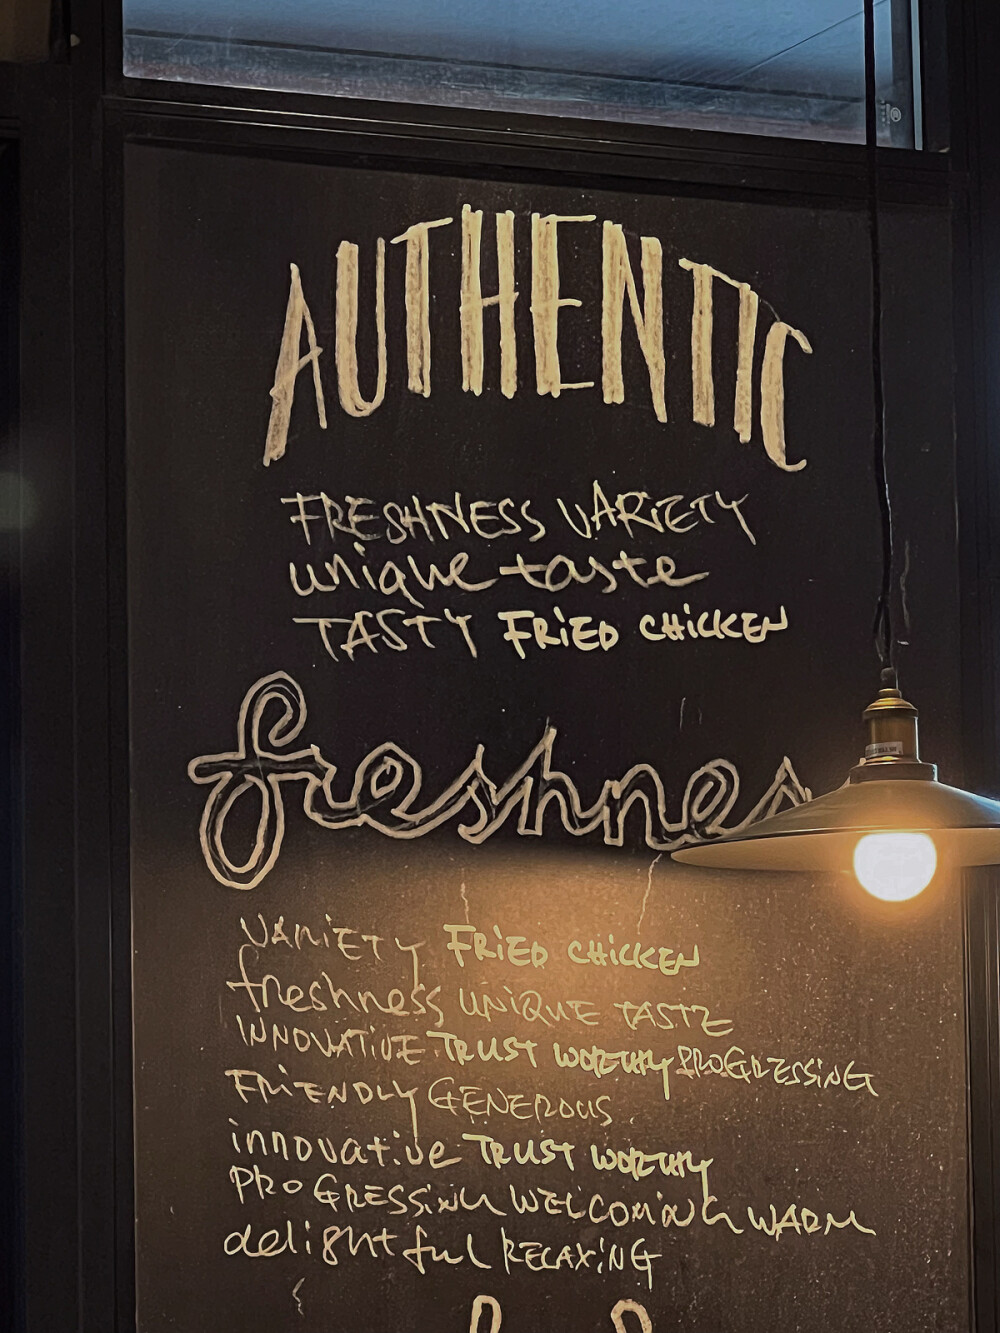 AUTHENTIC
FRESHNESS VARIETY
unique taste
TASTY FRiED CHiCKEN
freshnes
VARIETY FRiED CHiCKEN
freshness UNiQUE TASTE
INNOVATiVE TRUST WORTHY PROGRESSiNG
FRiENDLY GENEROUS
innovative TRUST WORTHY
PROGRESSiNG WELCOMiNG WARM
delightful RELAXiNG